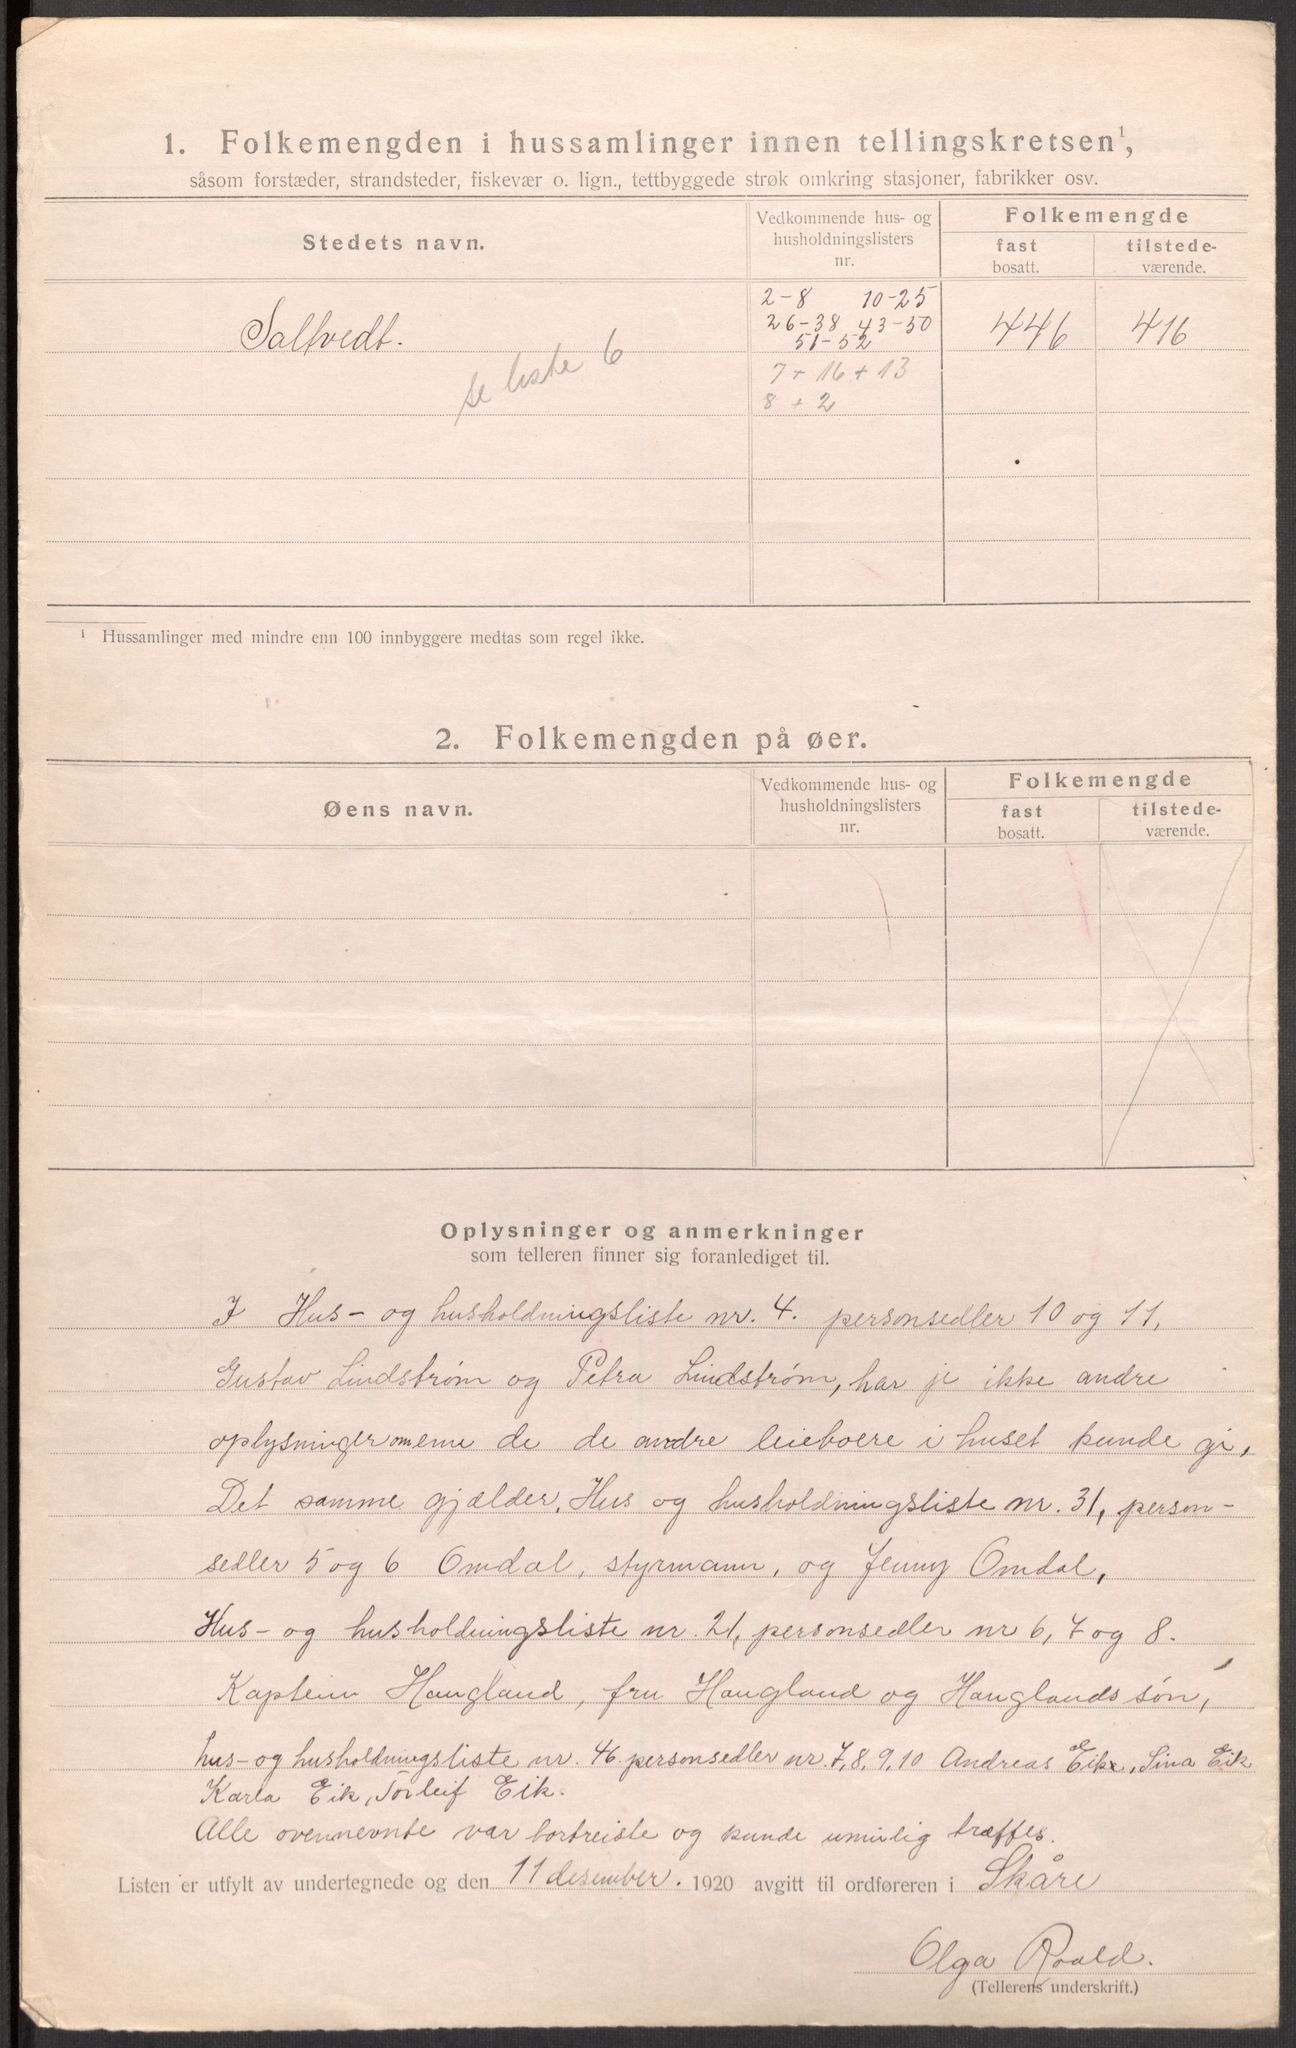 1. Folkemengden i hussamlinger innen tellingskretsen¹,
såsom forstæder, strandsteder, fiskevær o. lign., tettbyggede strøk omkring stasjoner, fabrikker osv.
Stedets navn.
Vedkommende hus- og
husholdningslisters
nr.
Folkemengde
fast
bosatt.
tilstede-
værende.
2-8 10-25
Saltvedt. 26-38 43-50 446 416
51-52
se liste 6 7 + 16 + 13
8 + 2
¹ Hussamlinger med mindre enn 100 innbyggere medtas som regel ikke.
2. Folkemengden på øer.
Øens navn.
Vedkommende hus- og
husholdningslisters
nr.
Folkemengde
fast
bosatt.
tilstede-
værende.
Oplysninger og anmerkninger
som telleren finner sig foranlediget til.
I Hus- og husholdningsliste nr. 4. personsedler 10 og 11,
Gustav Lindstrøm og Petra Lindstrøm, har je ikke andre
oplysninger de de andre leieboere i huset kunde gi,
Det samme gjælder, Hus og husholdningsliste nr. 31, person-
sedler 5 og 6 Omdal, styrmann, og Jenny Omdal,
Hus- og husholdningsliste nr. 21, personsedler nr 6, 7 og 8.
Kaptein Haugland, fru Haugland og Hauglands søn,
hus- og husholdningsliste nr. 46. personsedler nr. 7, 8, 9, 10 Andreas Eike, Sina Eik
Karla Eik, Torleif Eik.
Alle ovennevnte var bortreiste og kunde umulig træffes.
Listen er utfylt av undertegnede og den 11 desember. 1920 avgitt til ordføreren i Skåre
Olga Roald.
(Tellerens underskrift.)